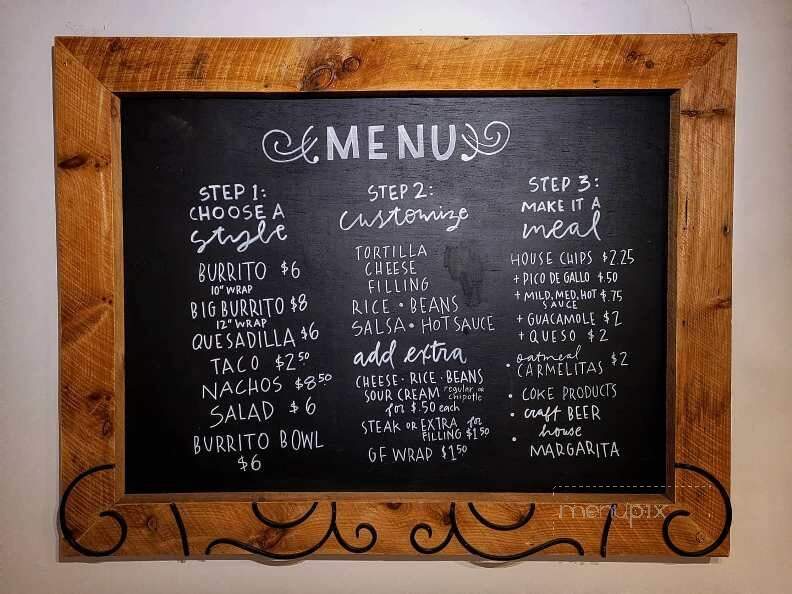 MENU
STEP 1:
CHOOSE A
style
BURRITO $6
10" WRAP
BIG BURRITO $8
12" WRAP
QUESADILLA $6
TACO $2.50
NACHOS $8.50
SALAD $6
BURRITO BOWL
$6
STEP 2:
customize
TORTILLA
CHEESE
FILLING
RICE • BEANS
SALSA • HOT SAUCE
add extra
CHEESE • RICE • BEANS
SOUR CREAM regular or chipotle
for $.50 each
STEAK OR EXTRA for
FILLING $1.50
GF WRAP $1.50
STEP 3:
MAKE IT A
meal
HOUSE CHIPS $2.25
+ PICO DE GALLO $.50
+ MILD, MED, HOT $.75
SAUCE
+ GUACAMOLE $2
+ QUESO $2
• oatmeal
CARMELITAS $2
• COKE PRODUCTS
• craft BEER
• house
MARGARITA
menupix